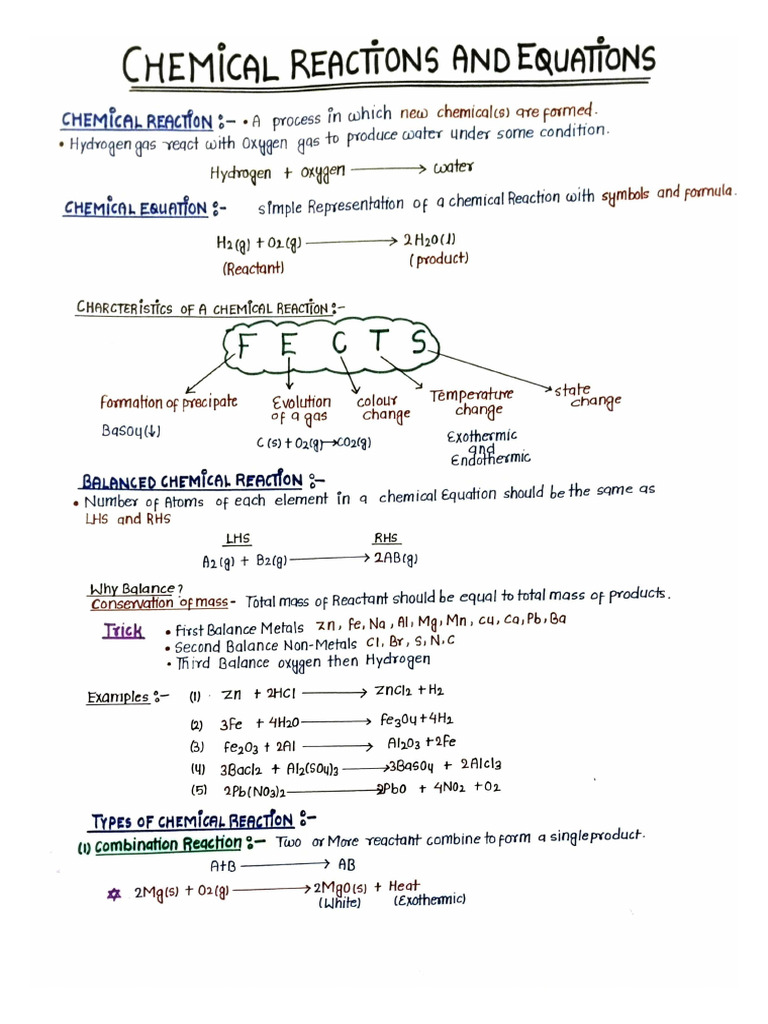 CHEMICAL REACTIONS AND EQUATIONS
CHEMICAL REACTION :- • A process in which new chemical(s) are formed.
• Hydrogen gas react with Oxygen gas to produce water under some condition.
Hydrogen + oxygen ⟶ water
CHEMICAL EQUATION :- simple Representation of a chemical Reaction with symbols and formula.
H2(g) + O2(g) ⟶ 2H2O(l)
(Reactant) (product)
CHARCTERISTICS OF A CHEMICAL REACTION :-
F E C T S
Formation of precipate Evolution of a gas colour change Temperature change state change
BaSO4(↓) C(s) + O2(g) → CO2(g) Exothermic and Endothermic
BALANCED CHEMICAL REACTION :-
• Number of Atoms of each element in a chemical Equation should be the same as
LHS and RHS
LHS RHS
A2(g) + B2(g) ⟶ 2AB(g)
Why Balance?
Conservation of mass - Total mass of Reactant should be equal to total mass of products.
Trick • First Balance Metals Zn, Fe, Na, Al, Mg, Mn, Cu, Ca, Pb, Ba
• Second Balance Non-Metals Cl, Br, S, N, C
• Third Balance oxygen then Hydrogen
Examples :- (1) Zn + 2HCl ⟶ ZnCl2 + H2
(2) 3Fe + 4H2O ⟶ Fe3O4 + 4H2
(3) Fe2O3 + 2Al ⟶ Al2O3 + 2Fe
(4) 3Bacl2 + Al2(SO4)3 ⟶ 3BaSO4 + 2Alcl3
(5) 2Pb(NO3)2 ⟶ 2PbO + 4NO2 + O2
TYPES OF CHEMICAL REACTION :-
(1) Combination Reaction :- Two or More reactant combine to form a single product.
A+B ⟶ AB
2Mg(s) + O2(g) ⟶ 2MgO(s) + Heat
(White) (Exothermic)